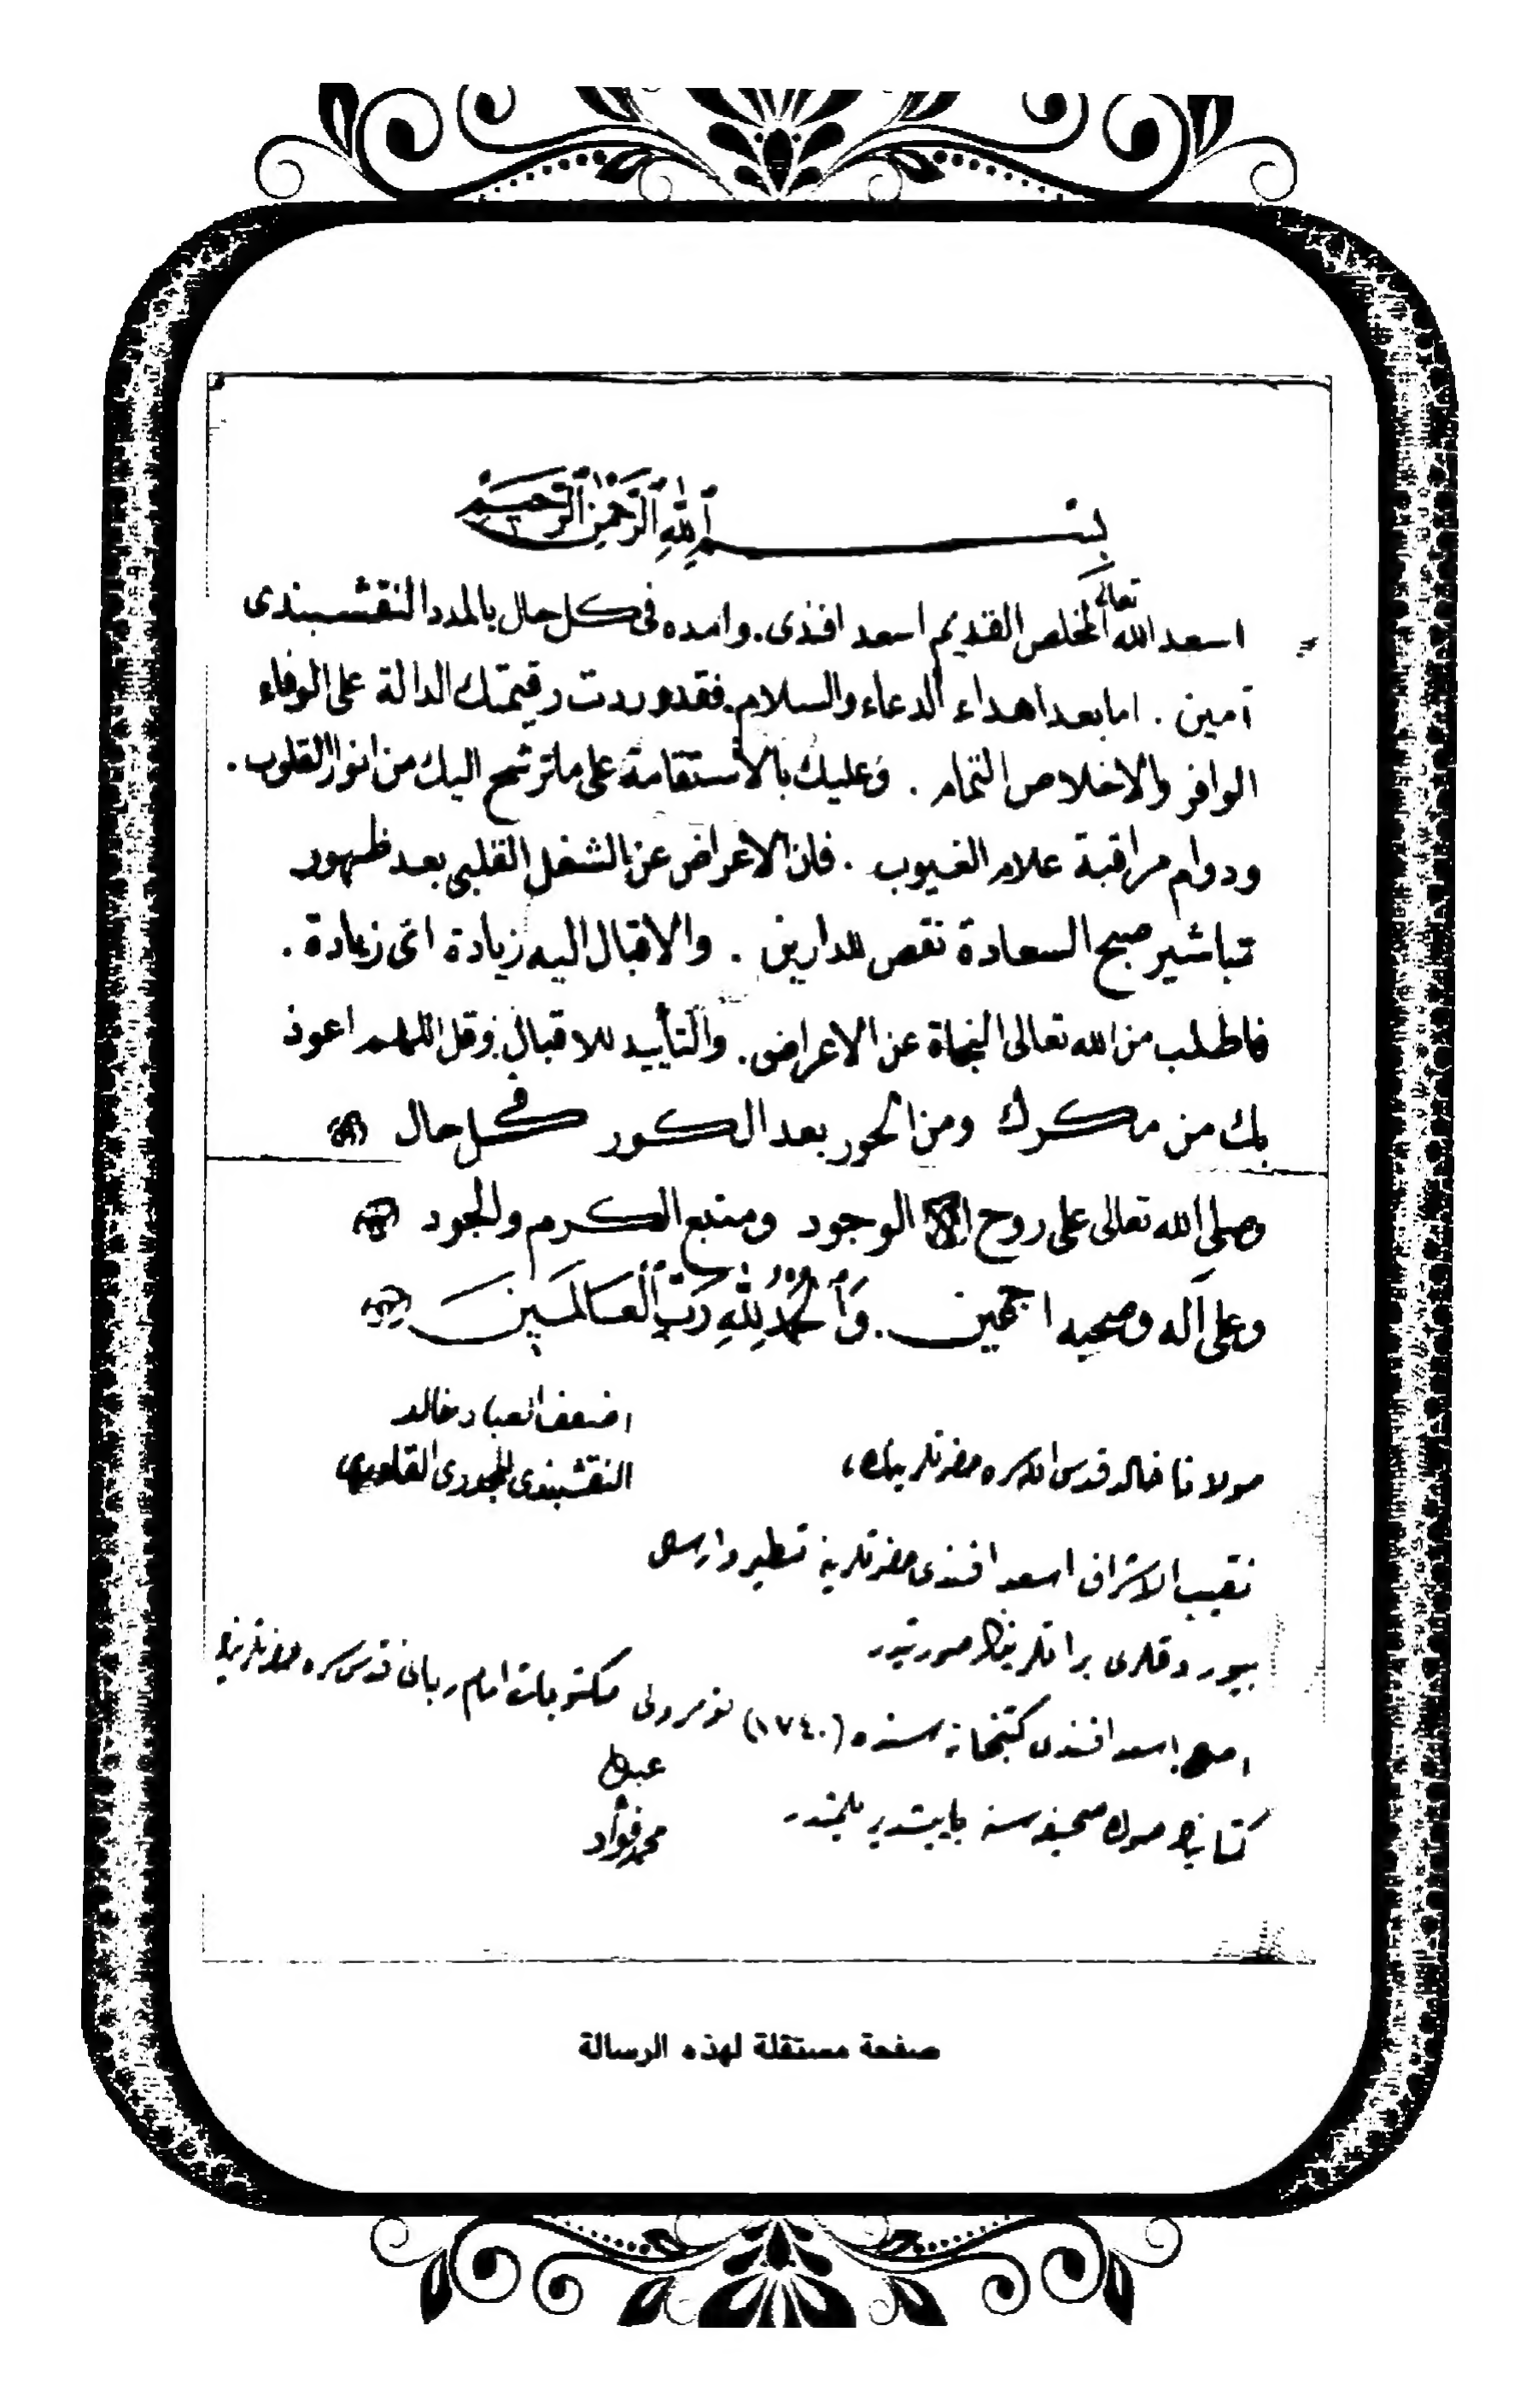 بسم ٱللهِ ٱلرَّحْمٰنِ ٱلرَّحيم
اسعد الله تعالى المخلص القديم اسعد افندى . وامده فى كل حال بالمدد النقشبندى
آمين . اما بعد اهداء الدعاء والسلام . فقد وردت رقيمتك الدالة على الوفاء
الوافر والاخلاص التمام . وعليك بالاستقامة على ماترشح اليك من انوار القلوب .
ودوام مراقبة علام الغيوب . فان الاعراض عن الشغل القلبى بعد ظهور
تباشير صبح السعادة نقص للدارين . والاقبال اليه زيادة اى زيادة .
فاطلب من الله تعالى النجاة عن الاعراض . والتأييد للاقبال . وقل اللهم اعوذ
بك من مكرك ومن الحور بعد الكور فى كل حال
وصلى الله تعالى على روح الوجود ومنبع الكرم والجود
وعلى آله وصحبه اجمعين . وَٱلْحَمْدُ لِلّٰهِ رَبِّ ٱلْعَالَمَينَ
اضعف العباد خالد
النقشبندى المجددى
مولانا خالد قدس الله سره حضرتلرينك
نقيب الاشراف اسعد افندى حضرتلرينه تسطير
بيوردقلرى صورتيدر
اسعد افندى كتبخانه سنده (١٧٤٠) نومرولى مكتوبات امام ربانى قدس سره
كتابنك صوك صحيفه سنه
محمد فؤاد
صفحة مستقلة لهذه الرسالة